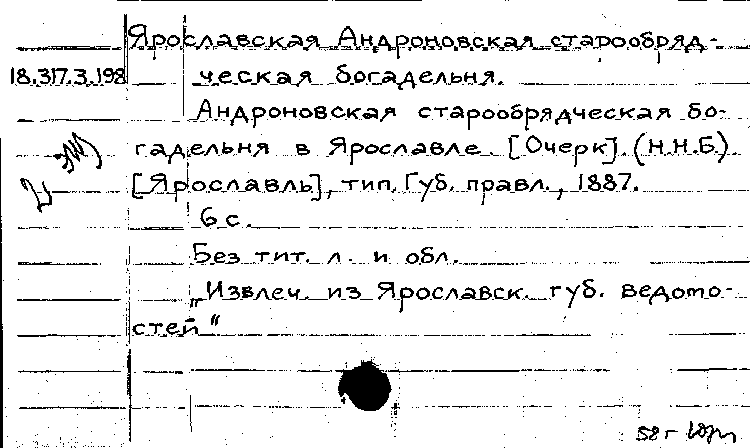 Ярославская Андроновская старообряд-
18.317.3.198 ческая богадельня.
Андроновская старообрядческая бо-
гадельня в Ярославле. [Очерк]. (Н.Н.Б.)
[Ярославль], тип. Губ. правл., 1887.
6 с.
Без тит. л. и обл.
„Извлеч. из Ярославск. губ. ведомо-
стей“
58 г